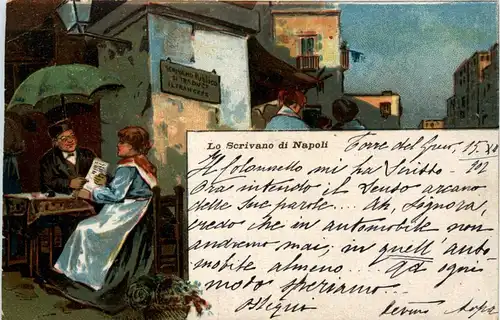 SCRIVANO PUBLICO
SI TRADUCE
IL FRANCESE
Lo Scrivano di Napoli
Torre del Greco, 15
Il Colonnello mi ha scritto
Ora intendo il senso arcano
delle sue parole... Ah, Signora,
credo che in automobile non
andremo mai; in quell' auto
mobile almeno... Ad ogni
modo speriamo...
Ossequi